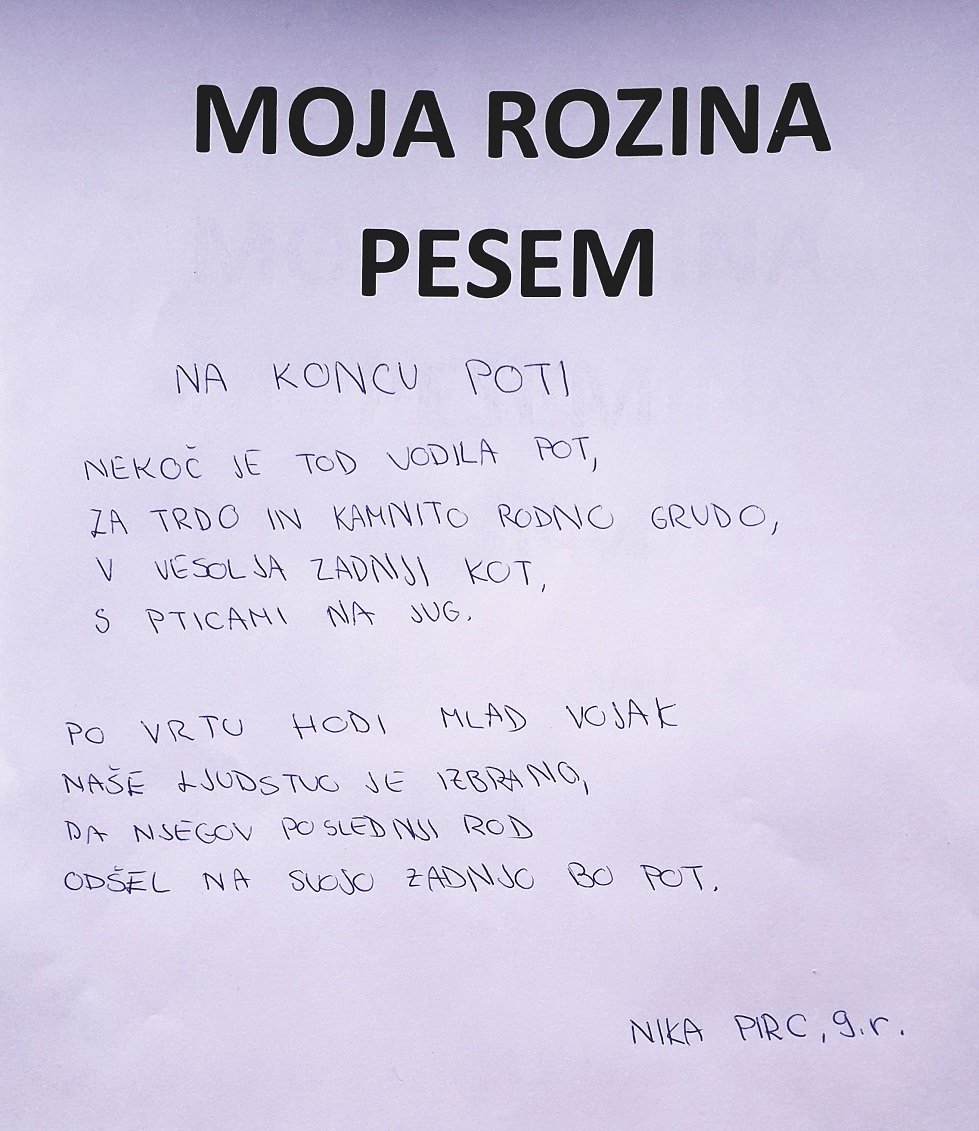 MOJA ROZINA
PESEM
NA KONCU POTI
NEKOČ JE TOD VODILA POT,
ZA TRDO IN KAMNITO RODNO GRUDO,
V VESOLJA ZADNJI KOT,
S PTICAMI NA JUG.
PO VRTU HODI MLAD VOJAK
NAŠE LJUDSTVO JE IZBRANO,
DA NJEGOV POSLEDNJI ROD
ODŠEL NA SVOJO ZADNJO BO POT.
NIKA PIRC, 9.r.